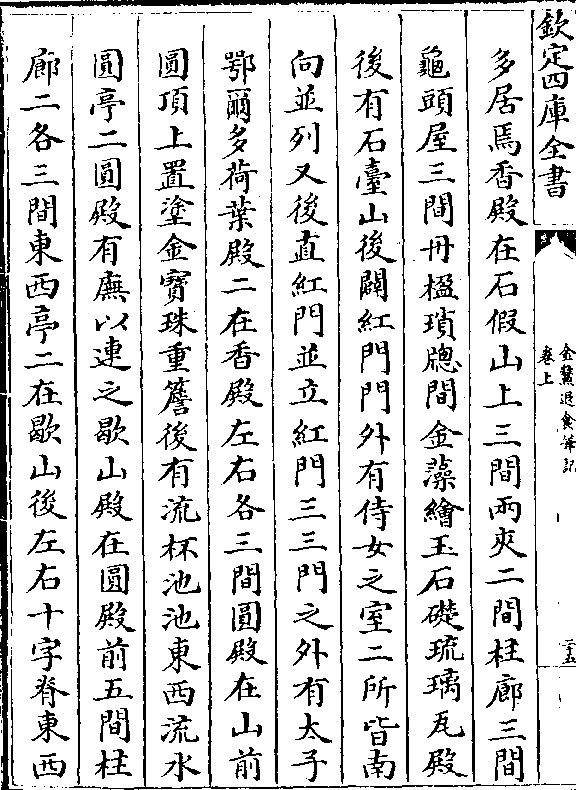 欽定四庫全書
金鰲退食筆記
卷上
二十五
多居焉香殿在石假山上三間兩夾二間柱廊三間
龜頭屋三間丹楹瑣牎間金藻繪玉石礎琉璃瓦殿
後有石臺山後闢紅門門外有侍女之室二所皆南
向並列又後直紅門並立紅門三三門之外有太子
鄂爾多荷葉殿二在香殿左右各三間圓殿在山前
圓頂上置塗金寶珠重簷後有流杯池池東西流水
圓亭二圓殿有廡以連之歇山殿在圓殿前五間柱
廊二各三間東西亭二在歇山後左右十字脊東西